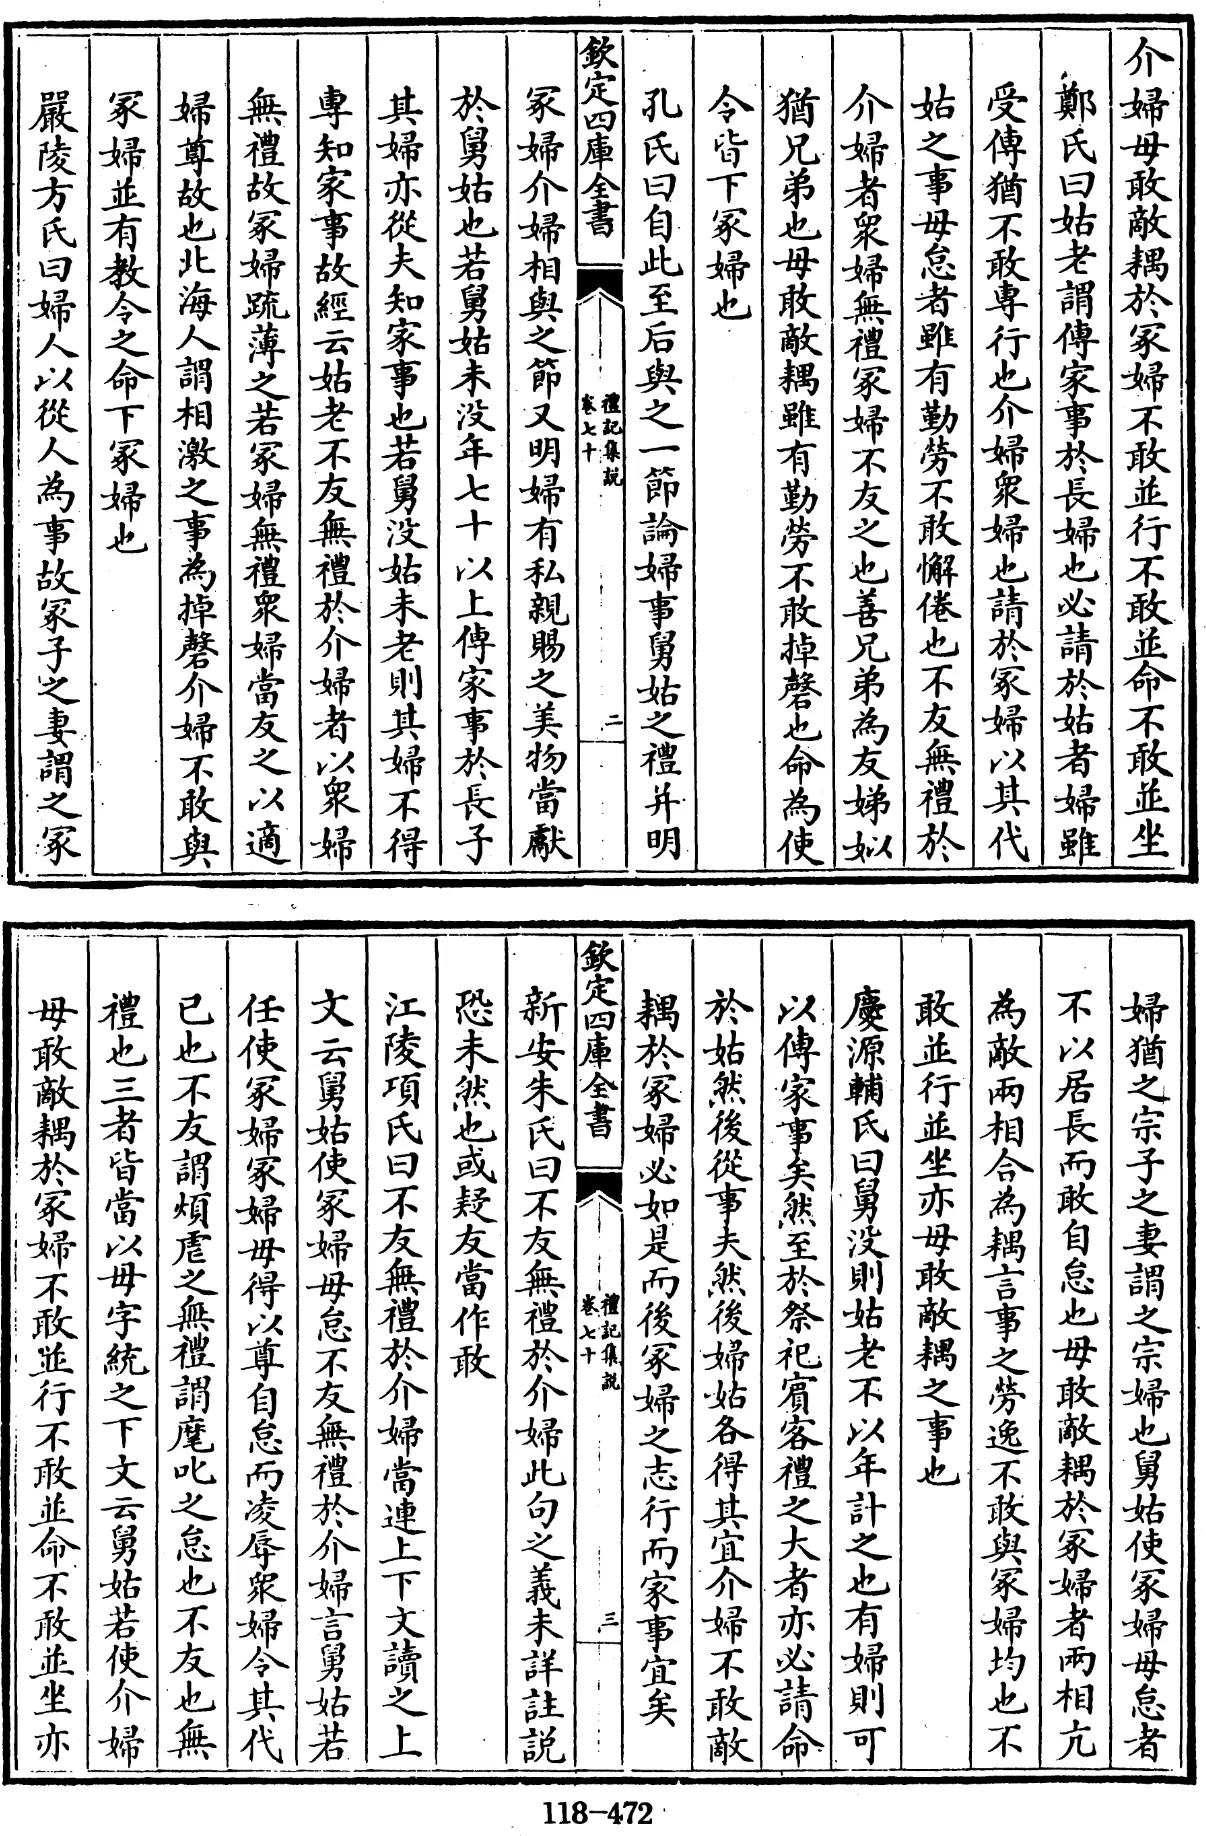 介婦毋敢敵耦於冡婦不敢並行不敢並命不敢並坐
鄭氏曰姑老謂傳家事於長婦也必請於姑者婦雖
受傳猶不敢專行也介婦衆婦也請於冡婦以其代
姑之事毋怠者雖有勤勞不敢懈倦也不友無禮於
介婦者衆婦無禮冡婦不友之也善兄弟為友娣姒
猶兄弟也毋敢敵耦雖有勤勞不敢掉磬也命為使
令皆下冡婦也
孔氏曰自此至后與之一節論婦事舅姑之禮并明
欽定四庫全書
禮記集說
卷七十
二
冡婦介婦相與之節又明婦有私親賜之美物當獻
於舅姑也若舅姑未沒年七十以上傳家事於長子
其婦亦從夫知家事也若舅沒姑未老則其婦不得
專知家事故經云姑老不友無禮於介婦者以衆婦
無禮故冡婦疏薄之若冡婦無禮衆婦當友之以適
婦尊故也北海人謂相激之事為掉磬介婦不敢與
冡婦並有教令之命下冡婦也
嚴陵方氏曰婦人以從人為事故冡子之妻謂之冡
婦猶之宗子之妻謂之宗婦也舅姑使冡婦毋怠者
不以居長而敢自怠也毋敢敵耦於冡婦者兩相亢
為敵兩相合為耦言事之勞逸不敢與冡婦均也不
敢並行並坐亦毋敢敵耦之事也
慶源輔氏曰舅沒則姑老不以年計之也有婦則可
以傳家事矣然至於祭祀賓客禮之大者亦必請命
於姑然後從事夫然後婦姑各得其宜介婦不敢敵
耦於冡婦必如是而後冡婦之志行而家事宜矣
欽定四庫全書
禮記集說
卷七十
三
新安朱氏曰不友無禮於介婦此句之義未詳註說
恐未然也或疑友當作敢
江陵項氏曰不友無禮於介婦當連上下文讀之上
文云舅姑使冡婦毋怠不友無禮於介婦言舅姑若
任使冡婦冡婦毋得以尊自怠而凌辱衆婦令其代
已也不友謂煩虐之無禮謂麾叱之怠也不友也無
禮也三者皆當以毋字統之下文云舅姑若使介婦
毋敢敵耦於冡婦不敢並行不敢並命不敢並坐亦
118-472